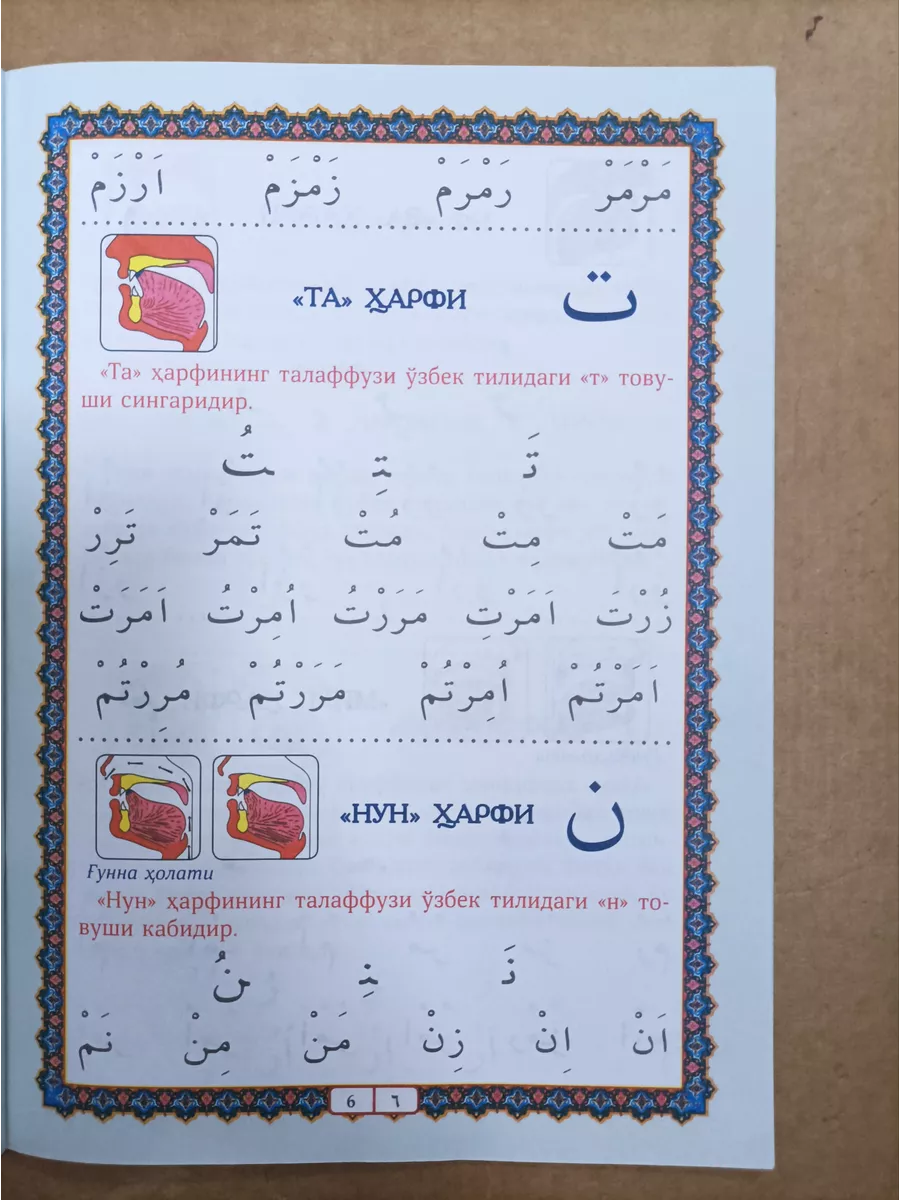 مَرْمَرْ رَمْرَمْ زَمْزَمْ اَرْزَمْ
«ТА» ҲАРФИ ت
«Та» ҳарфининг талаффузи ўзбек тилидаги «т» тову-
ши сингаридир.
تَـ ـتِـ ـتُ
مَتْ مِتْ مُتْ تَمَرْ تَرِرْ
زُرْتَ اَمَرْتِ مَرَرْتُ اُمِرْتُ اَمَرَتْ
اَمَرْتُمْ اُمِرْتُمْ مَرَرْتُمْ مُرِرْتُمْ
«НУН» ҲАРФИ ن
Ғунна ҳолати
«Нун» ҳарфининг талаффузи ўзбек тилидаги «н» то-
вуши кабидир.
نَـ ـنِـ ـنُ
اَنْ اِنْ زِنْ مَنْ مِنْ نَمْ
6 ٦